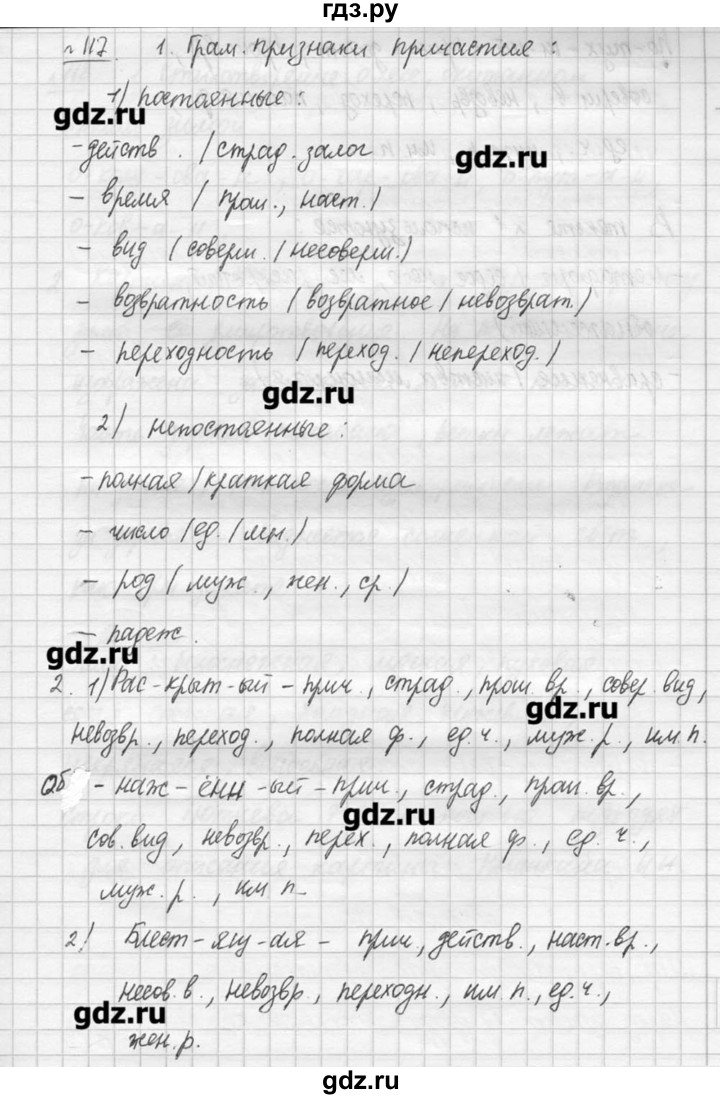 гдз.ру
№117. 1. Грам. признаки причастия:
1) постоянные:
gdz.ru
- действ. / страд. залог
gdz.ru
- время (прош., наст.)
- вид (соверш. / несоверш.)
- возвратность (возвратное / невозврат.)
- переходность (переход. / непереход.)
gdz.ru
2) непостоянные:
- полная / краткая форма
- число (ед. / мн.)
- род (муж., жен., ср.)
- падеж.
gdz.ru
2. 1) Рас-крыт-ый - прич., страд., прош. вр., совер. вид,
gdz.ru
невозвр., переход., полная ф., ед. ч., муж. р., им. п.
Об-наж-ённ-ый - прич., страд., прош. вр.,
gdz.ru
сов. вид, невозвр., перех., полная ф., ед. ч.,
муж. р., им. п.
2) Блест-ящ-ая - прич., действ., наст. вр.,
несов. в., невозвр., переходн., им. п., ед. ч.,
gdz.ru
жен. р.
gdz.ru